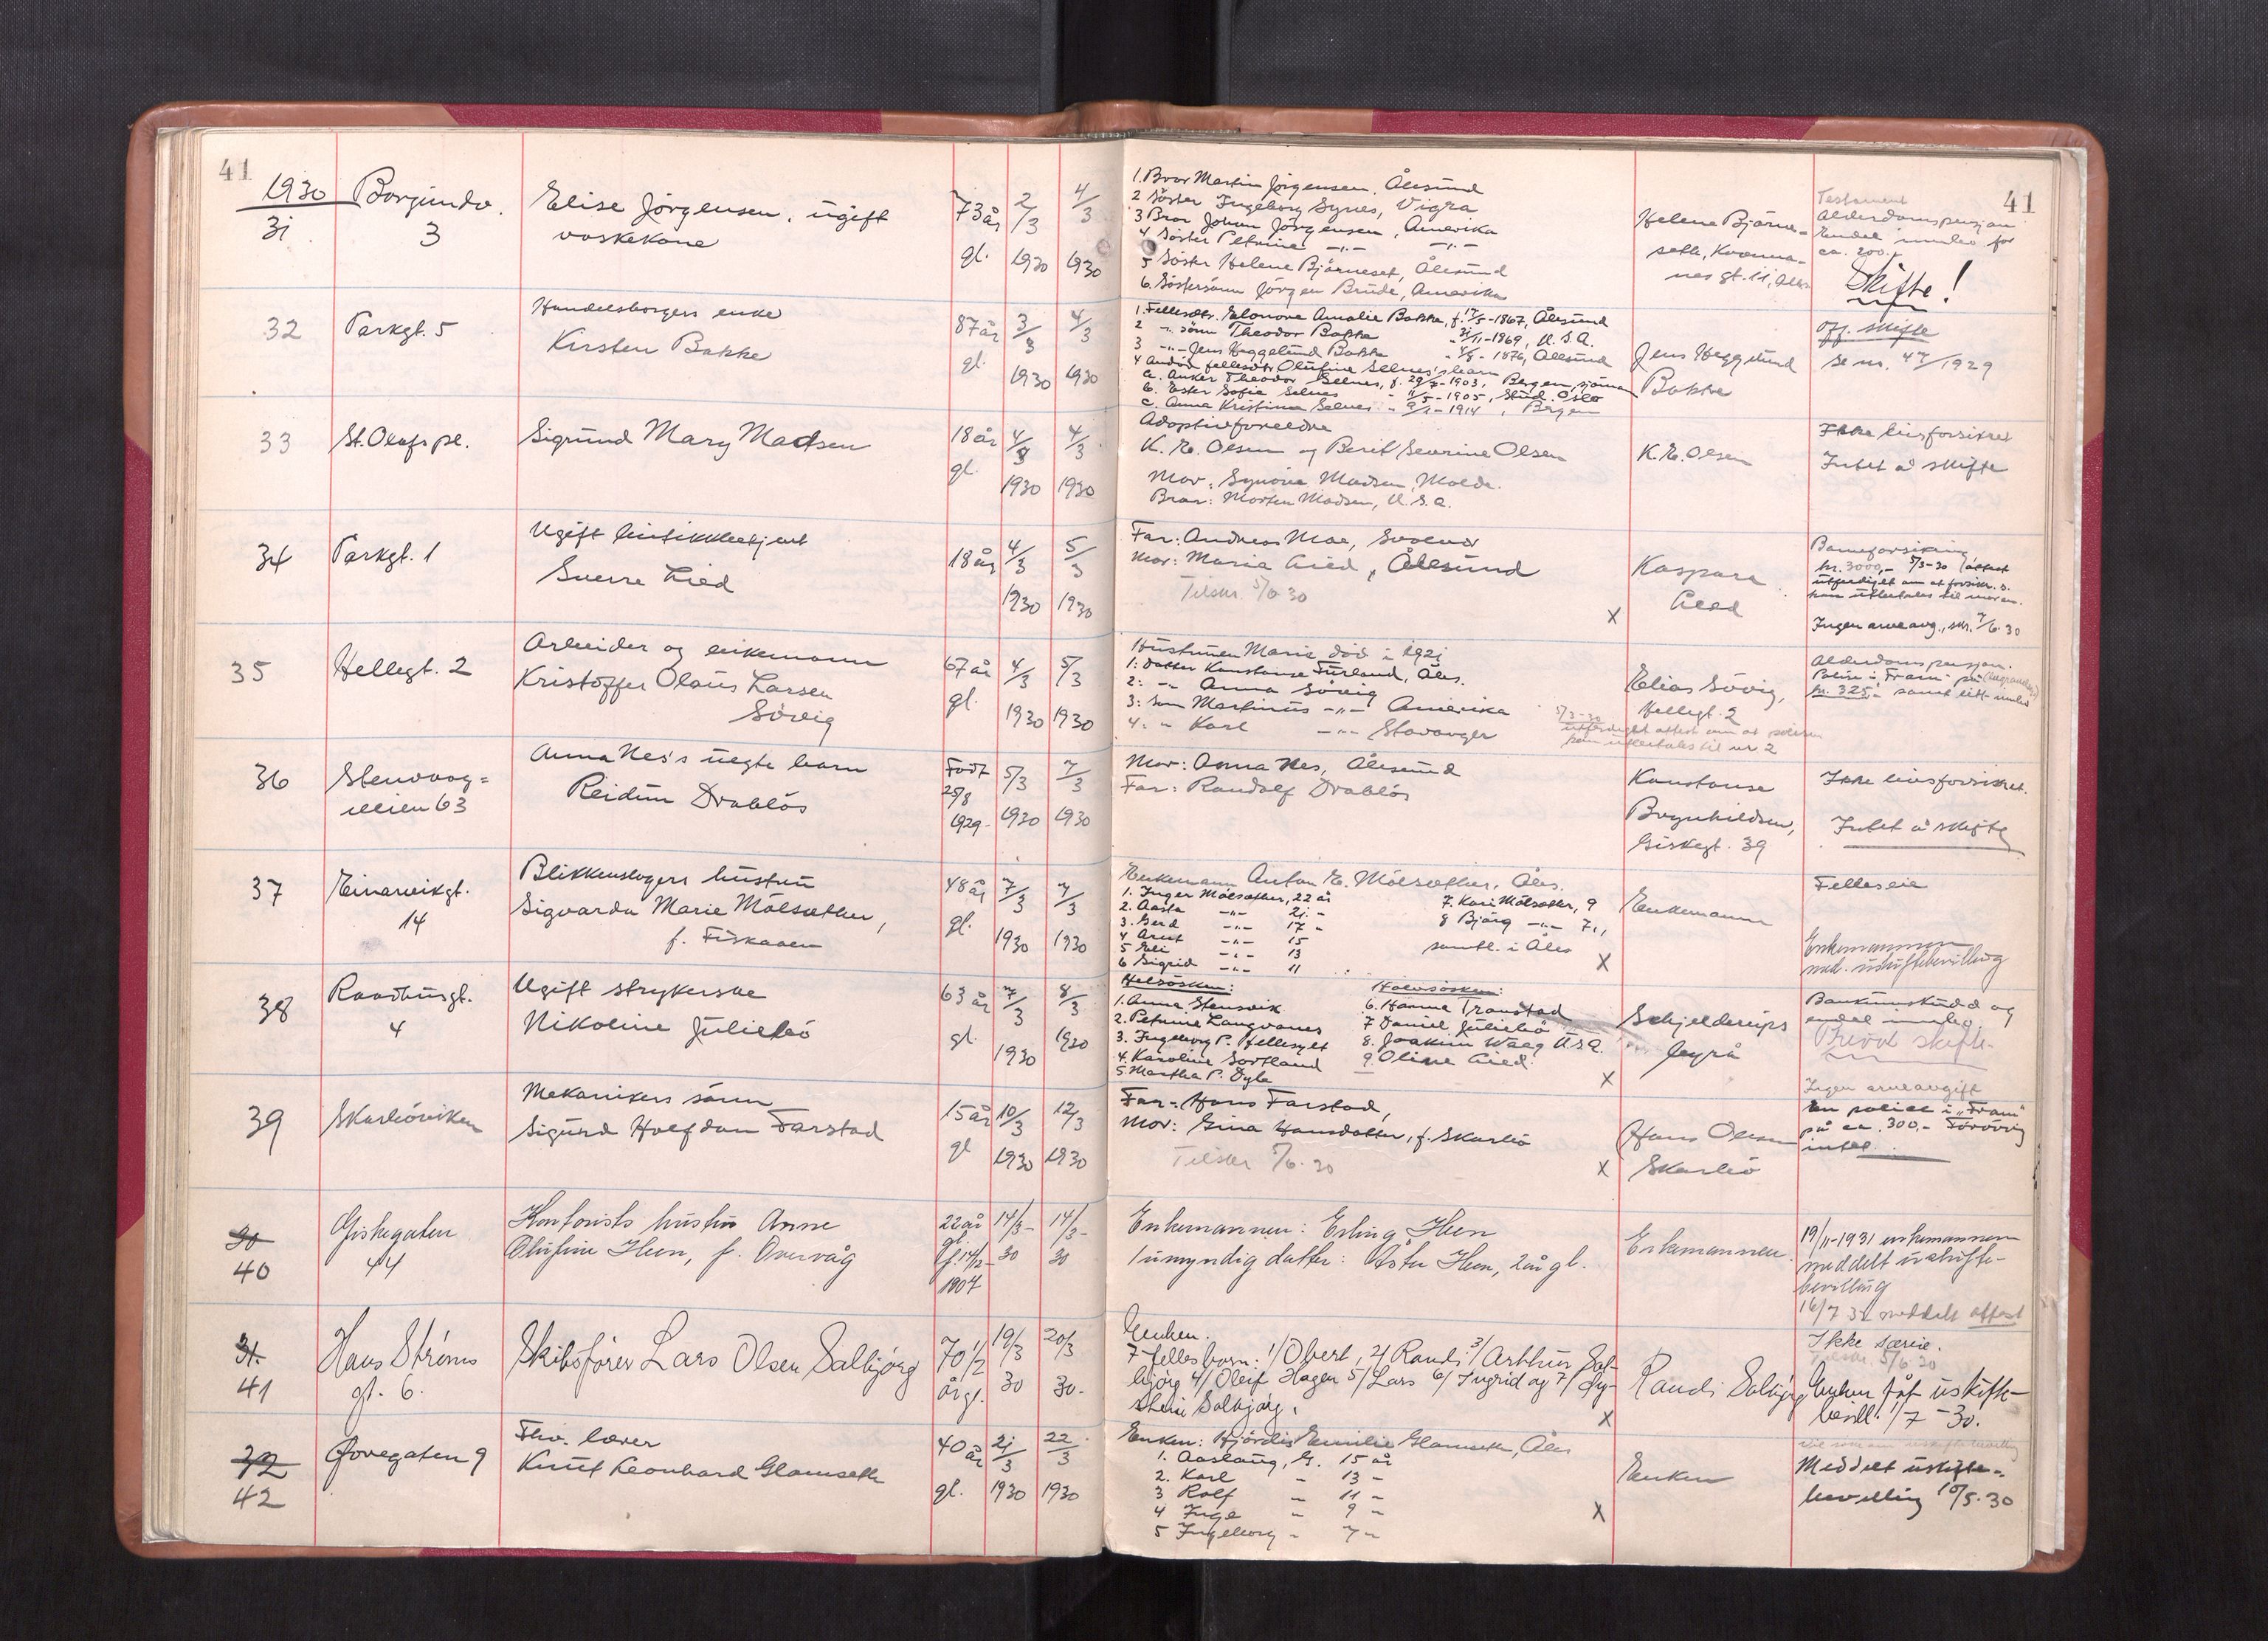 41
1930
31
Borgundv.
3
Elise Jörgensen, ugift
vaskekone
73 år
gl.
2/3
1930
4/3
1930
1. Bror Martin Jörgensen, Ålesund
2 Söster Ingeborg Synes, Vigra
3 Bror Johan Jörgensen, Amerika
4 Söster Petrine -"- -"-
5 Söster Helene Bjørneset, Ålesund
6. Söstersönn Jörgen Brude, Amerika
Helene Bjørne-
seth, Kvenna-
nes gt. 11, Åles
41
Testament
Alderdomspensjon
Endel innbo for
ca. 200.-
Skifte!
32
Parkgt. 5
Handelsborgers enke
Kirsten Bakke
87 år
gl.
3/3
1930
4/3
1930
1. Fellesdtr. Elonora Amalie Bakke, f. 17/5-1867, Ålesund
2 -"- sönn Theodor Bakke - 21/11-1869, U.S.A.
3 -"- Jens Heggelund Bakke - 4/8-1876, Ålesund
4 Avdöd fellesdtr Olufine Selnes's barn
a. Anker Theodor Selnes, f. 29/7-1903, Bergen, sjömann
b. Ester Sofie Selnes - 11/5-1905, stud. Oslo
c. Anna Kristine Selnes - 9/1-1914, Bergen
Jens Heggelund
Bakke
Off. skifte
se nr. 47/1929
33
St. Olafs pl.
Sigrund Mary Madsen
18 år
gl.
4/3
1930
4/3
1930
Adoptivforeldre
K. E. Olsen og Berit Severine Olsen
Mor: Synöve Madsen, Molde.
Bror: Morten Madsen, U.S.A.
K. E. Olsen
Ikke livsforsikret
Intet å skifte
34
Parkgt. 1
Ugift butikkbetjent
Sverre Lied
18 år
4/3
1930
5/3
1930
Far: Andreas Moe,
Mor: Maria Lied, Ålesund
Tilskr. 5/6 30
X
Kaspara
Lied
Barneforsikring
kr. 3000,- 5/3-30 attest
utferdiget om at forsikr. s.
kan utbetales til moren.
Ingen arveavg., skr. 7/6.30
35
Hellegt. 2
Arbeider og enkemann
Kristoffer Olaus Larsen
Sövig
67 år
gl.
4/3
1930
5/3
1930
Hustruen Marie död i 1921
1: Datter Konstanse Furland, Åles.
2: -"- Anna Sövig
3: Sönn Martinus -"- Amerika
4: " Karl -"- Stavanger
5/3-30
utferdiget attest om at polisen
kan utbetales til nr 2
Elias Sövig,
Hellegt. 2
Alderdomspensjon.
Polise i "Fram" på
kr. 325,- samt litt innbo
36
Stenvaag-
veien 63
Anna Nes's uegte barn
Reidun Drablös
Födt
25/8
1929
5/3
1930
7/3
1930
Mor: Anna Nes, Ålesund
Far: Randolf Drablös
Konstanse
Brynhildsen,
Giskegt. 39
Ikke livsforsikret.
Intet å skifte
37
Einarvikgt.
14
Blikkenslagers hustru
Sigvarda Marie Mölsæther,
f. Fiskaaen
48 år
gl.
7/3
1930
7/3
1930
Enkemann Anton E. Mölsæther, Åles.
1. Inger Mölsæther, 22 år
2. Aasta -"- 21 -
3. Gerd -"- 17 -
4 Arnt -"- 15
5 Eli -"- 13
6 Sigrid -"- 11
7. Kari Mölsæther, 9
8 Björg -"- 7 "
samtl. i Åles
X
Enkemann
Felleseie
Enkemannen
med. uskiftebevilling
38
Raadhusgt.
4
Ugift strykerske
Nikoline Juliebö
63 år
gl.
7/3
1930
8/3
1930
Helsösken:
1. Anna Stensvik
2. Petrine Langvanes
3. Ingeborg P. Hellesylt
4. Karoline Sortland
5. Martha P. Dyle
Halvsösken:
6. Hanna Transtad
7 Daniel Juliebö
8. Joakim Waag U.S.A.
9. Oline Lied
X
Schjelderups
byrå
Bankinnskudd og
endel innbo
Privat skifte.
39
Skarbövika
Mekanikers sönn
Sigurd Halfdan Farstad
15 år
gl
10/3
1930
12/3
1930
Far: Hans Farstad,
Mor: Gina Hansdatter, f. Skarbö
Tilskr 5/6.30
X
Hans Olsen
Skarbö
Ingen arveavgift
En police i "Fram"
på ca. 300,- Forövrig
intet
30
40
Giskegaten
44
Kontorists hustru Anne
Olufine Hern, f. Overvåg
22 år
gl.
f. 14/12-
1907
14/3-
30
14/3-
30
Enkemannen: Erling Hern
1 umyndig datter: Åsta Hern, 2 år gl.
Enkemannen
19/11-1931 enkemannen
meddelt uskifte-
bevilling
16/7 32 meddelt attest
31.
41
Hans Ströms
gt. 6.
Skibsförer Lars Olsen Salbjörg
70 1/2
år gl.
19/3
30
20/3
30.
Enken.
7 fellesbarn: 1/ Obert, 2/ Randi 3/ Arthur Sal-
björg 4/ Oleif Hagen 5/ Lars 6/ Ingrid og 7/ Öy-
stein Salbjörg.
X
Randi Salbjörg
Ikke særeie.
Tilskr 5/6 30
Enken fåt uskifte-
bevill. 1/7-30.
32
42
Övregaten 9
Fhv. lærer
Knut Leonhard Glomseth
40 år
gl.
21/3
1930
22/3
1930
Enken: Hjördis Emilie Glomseth, Åles
1. Aaslaug, G. 15 år
2. Karl " 13 -
3 Rolf " 11 -
4 Inge " 9 -
5 Ingeborg " 7 -
X
Enken
Meddelt uskifte-
bevilling 10/5.30